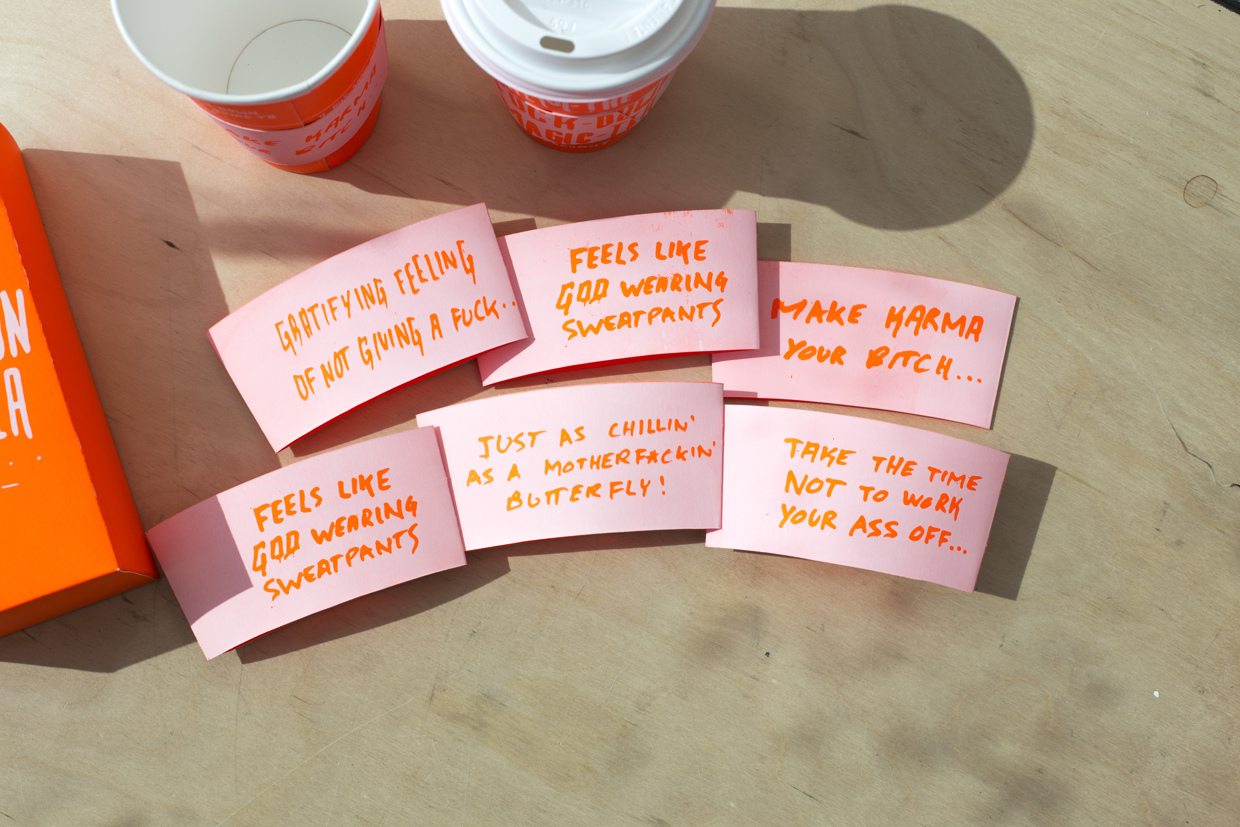 MAKE KARMA
BITCH
MAGIC
GRATIFYING FEELING
OF NOT GIVING A FUCK..
FEELS LIKE
GOD WEARING
SWEATPANTS
MAKE KARMA
YOUR BITCH...
FEELS LIKE
GOD WEARING
SWEATPANTS
JUST AS CHILLIN'
AS A MOTHERFACKIN'
BUTTERFLY!
TAKE THE TIME
NOT TO WORK
YOUR ASS OFF...